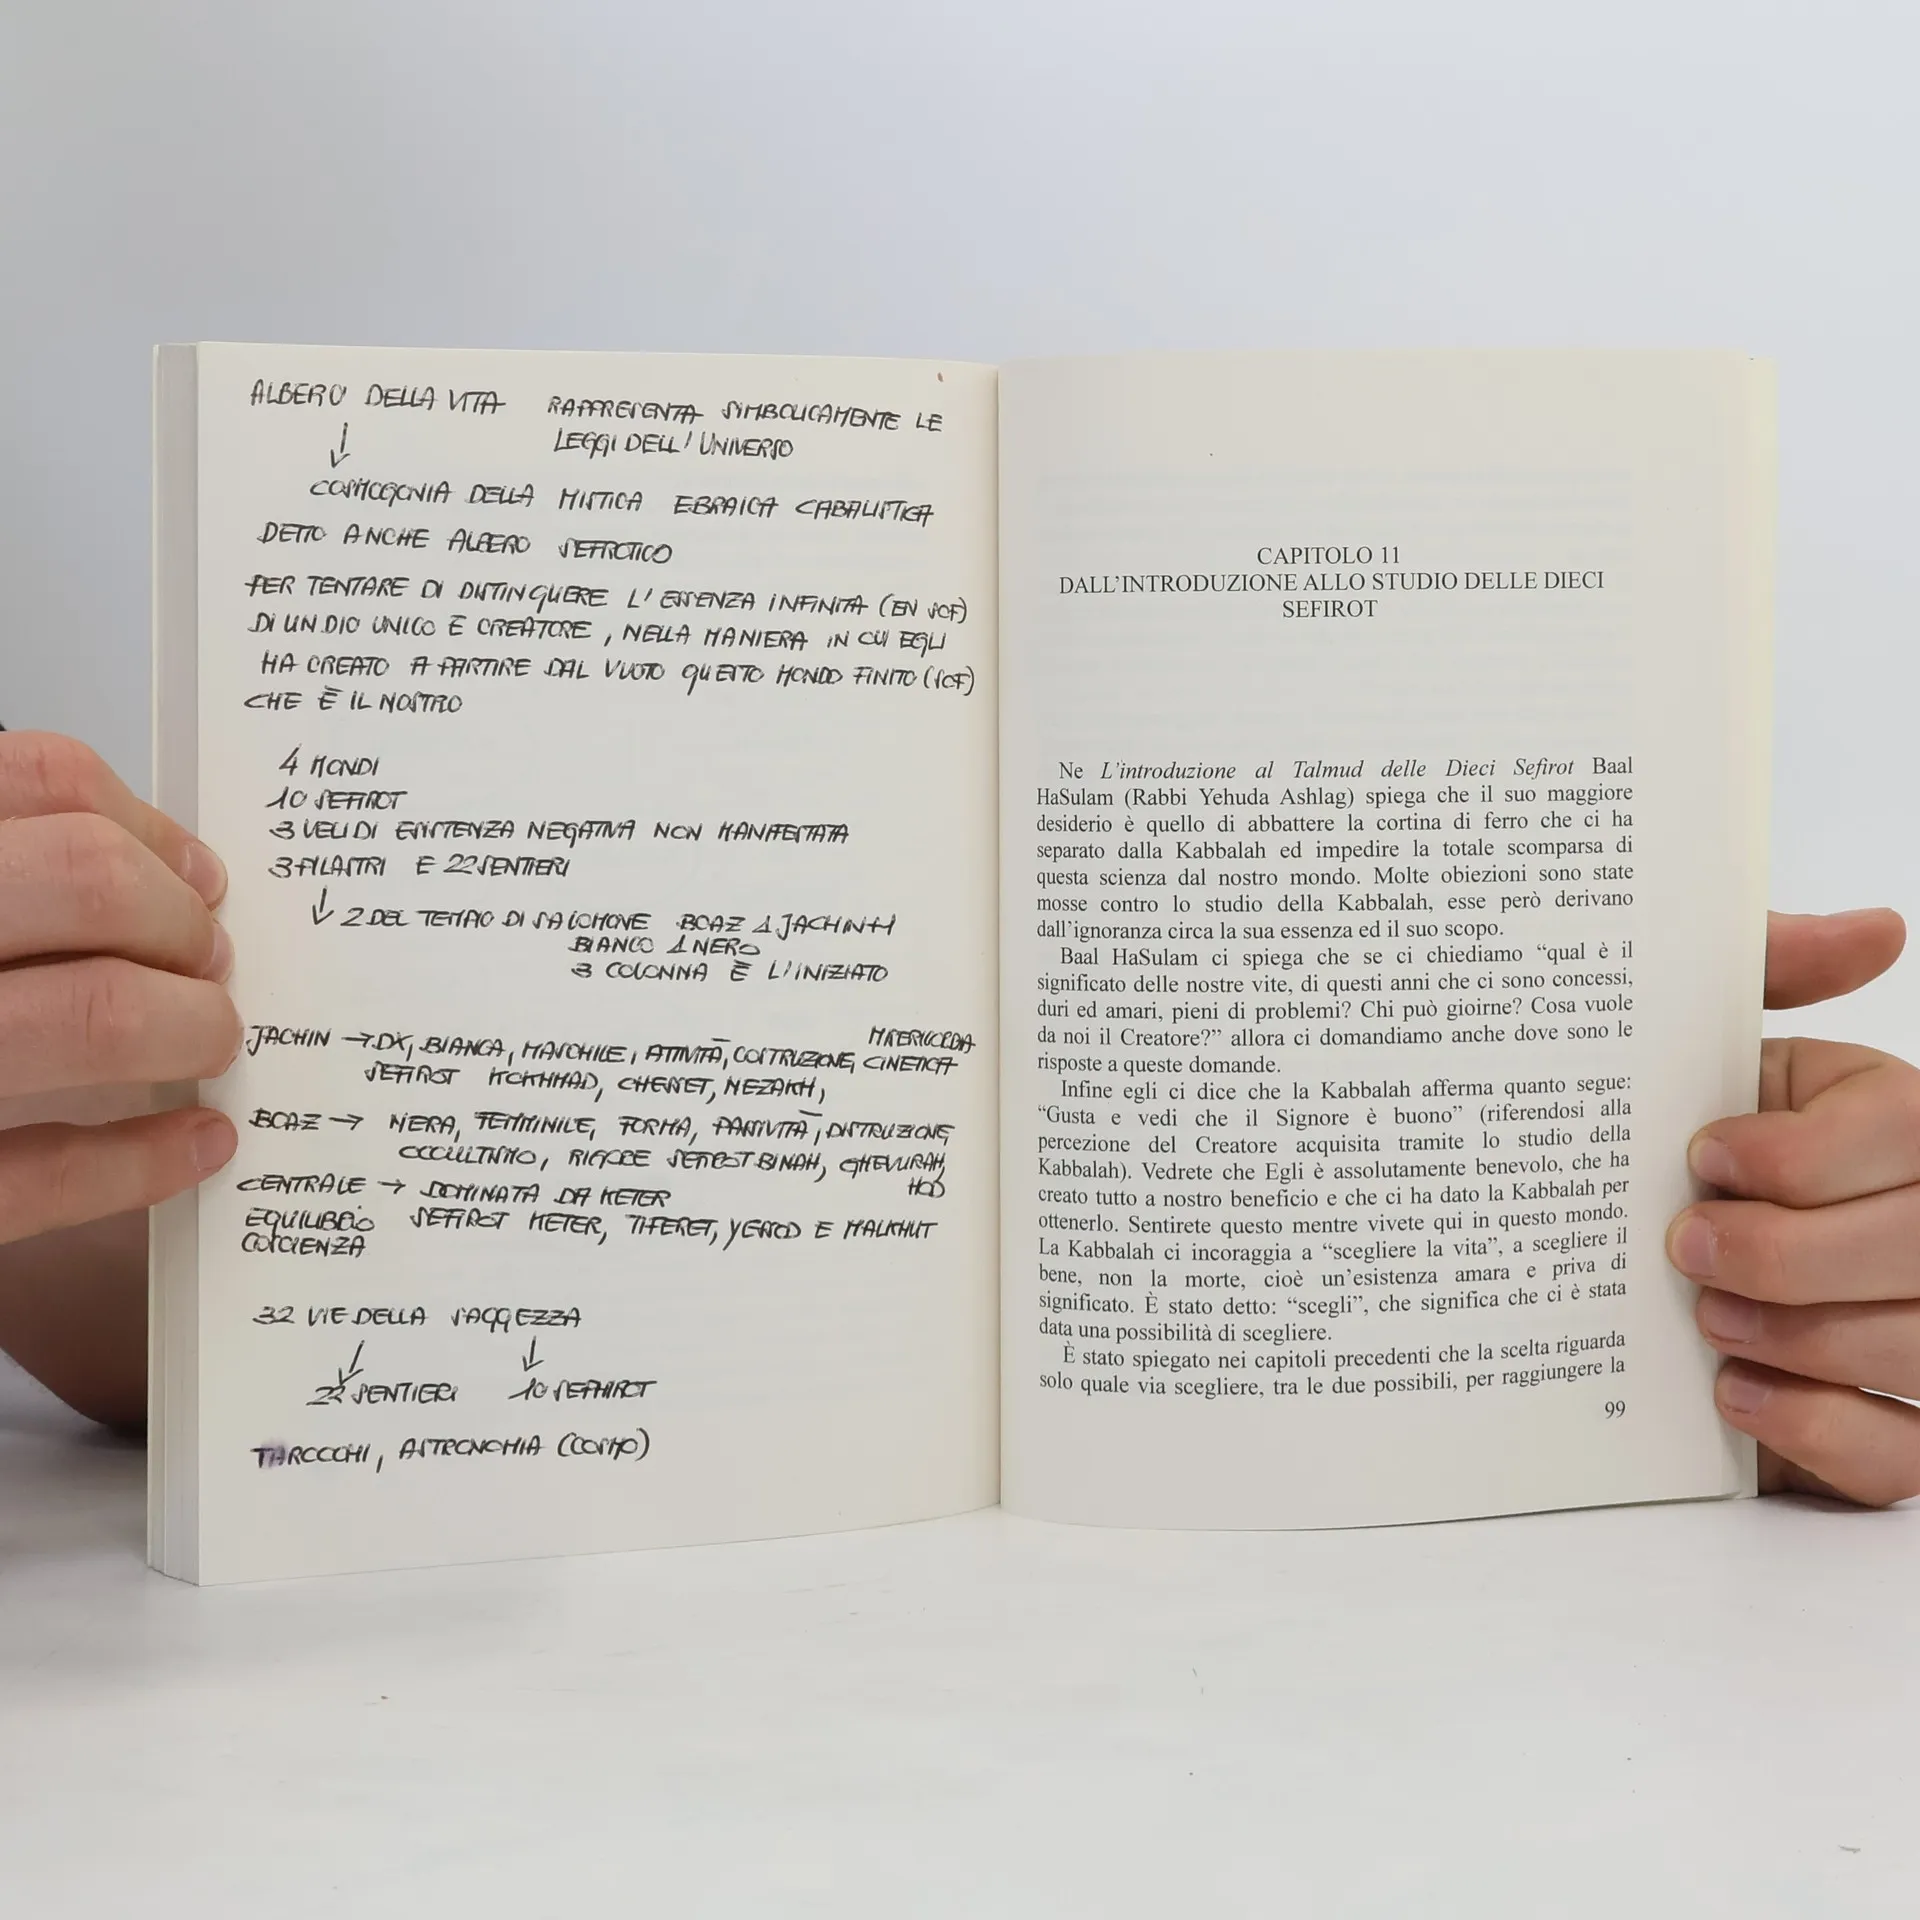 ALBERO DELLA VITA RAPPRESENTA SIMBOLICAMENTE LE
LEGGI DELL' UNIVERSO
↓
COSMOGONIA DELLA MISTICA EBRAICA CABALISTICA
DETTO ANCHE ALBERO SEFIROTICO
PER TENTARE DI DISTINGUERE L' ESSENZA INFINITA (EN SOF)
DI UN DIO UNICO E CREATORE, NELLA MANIERA IN CUI EGLI
HA CREATO A PARTIRE DAL VUOTO QUESTO MONDO FINITO (SOF)
CHE È IL NOSTRO
4 MONDI
10 SEFIROT
3 VELI DI ESISTENZA NEGATIVA NON MANIFESTATA
3 PILASTRI E 22 SENTIERI
↓ 2 DEL TEMPIO DI SALOMONE BOAZ 1 JACHIN
BIANCO 1 NERO
3 COLONNA È L'INIZIATO
JACHIN → DX, BIANCA, MASCHILE, ATTIVITÀ, COSTRUZIONE, CINETICA MISERICORDIA
SEFIROT HOKHMAD, CHESSET, NEZAKH,
BOAZ → NERA, FEMMINILE, FORMA, PASSIVITÀ, DISTRUZIONE,
OCCULTISMO, RIGORE SEFIROT BINAH, GHEVURAH,
HOD
CENTRALE → DOMINATA DA KETER
EQUILIBRIO SEFIROT KETER, TIFERET, YESOD E MALKHUT
COSCIENZA
32 VIE DELLA SAGGEZZA
↓ ↓
22 SENTIERI 10 SEPHIROT
TAROCCHI, ASTRONOMIA (COSMO)
CAPITOLO 11
DALL'INTRODUZIONE ALLO STUDIO DELLE DIECI
SEFIROT
Ne L'introduzione al Talmud delle Dieci Sefirot Baal
HaSulam (Rabbi Yehuda Ashlag) spiega che il suo maggiore
desiderio è quello di abbattere la cortina di ferro che ci ha
separato dalla Kabbalah ed impedire la totale scomparsa di
questa scienza dal nostro mondo. Molte obiezioni sono state
mosse contro lo studio della Kabbalah, esse però derivano
dall'ignoranza circa la sua essenza ed il suo scopo.
Baal HaSulam ci spiega che se ci chiediamo “qual è il
significato delle nostre vite, di questi anni che ci sono concessi,
duri ed amari, pieni di problemi? Chi può gioirne? Cosa vuole
da noi il Creatore?” allora ci domandiamo anche dove sono le
risposte a queste domande.
Infine egli ci dice che la Kabbalah afferma quanto segue:
“Gusta e vedi che il Signore è buono” (riferendosi alla
percezione del Creatore acquisita tramite lo studio della
Kabbalah). Vedrete che Egli è assolutamente benevolo, che ha
creato tutto a nostro beneficio e che ci ha dato la Kabbalah per
ottenerlo. Sentirete questo mentre vivete qui in questo mondo.
La Kabbalah ci incoraggia a “scegliere la vita”, a scegliere il
bene, non la morte, cioè un'esistenza amara e priva di
significato. È stato detto: “scegli”, che significa che ci è stata
data una possibilità di scegliere.
È stato spiegato nei capitoli precedenti che la scelta riguarda
solo quale via scegliere, tra le due possibili, per raggiungere la
99